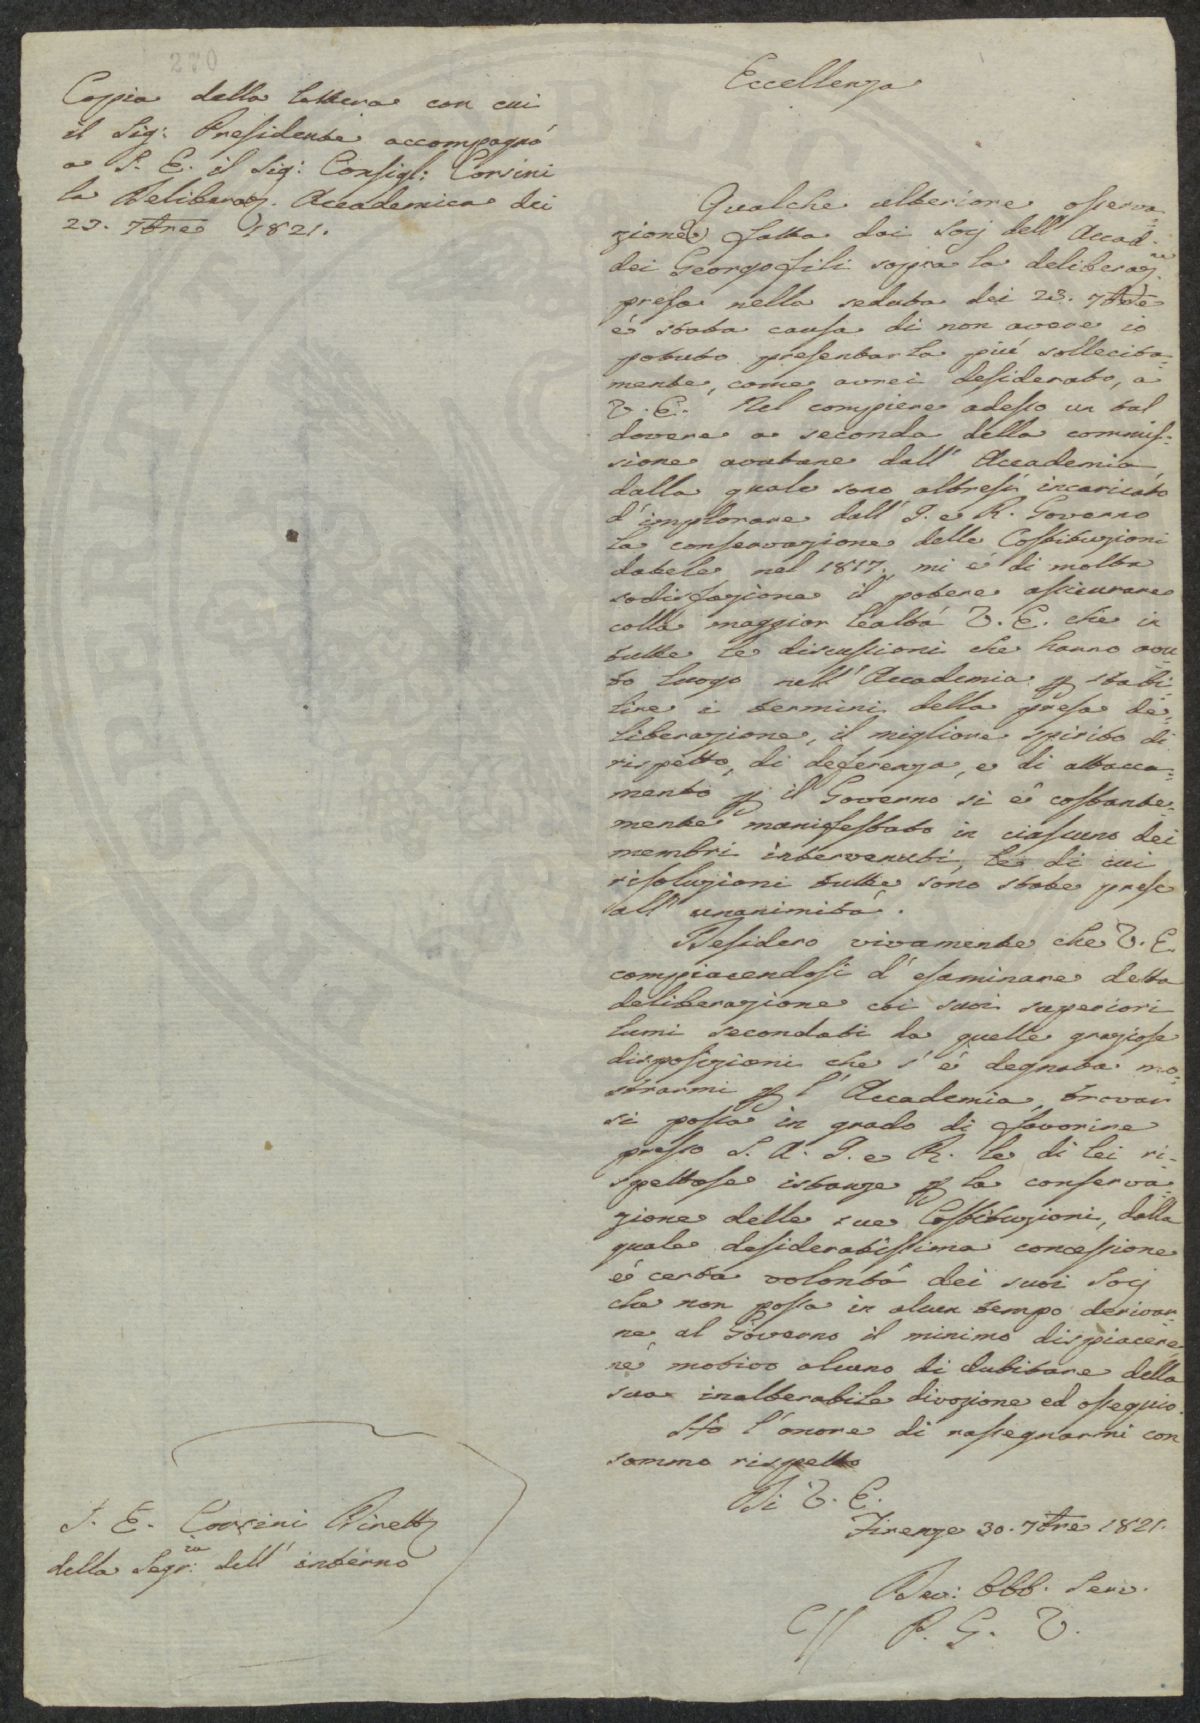 270
Coppia della lettera con cui
il Sig: Presidente accompagnò
a S. E. il Sig: Consigl: Corsini
la Deliberaz. Accademica dei
23. 7bre 1821.
Eccellenza
Qualche ulteriore osserva-
zione fatta dai Socj dell' Accad.
dei Georgofili sopra la deliberaz.ne
presa nella seduta dei 23. 7bre
è stata causa di non avere io
potuto presentarla più sollecita-
mente, come avrei desiderato, a
V. E. Nel compiere adesso un tal
dovere a seconda della commis-
sione avutane dall' Accademia,
dalla quale sono altresì incaricato
d'implorare dall' I. e R. Governo
la conservazione delle Costituzioni
datele nel 1817. mi è di molta
sodisfazione il potere assicurare
colla maggior lealtà V. E. che in
tutte le discussioni che hanno avu-
to luogo nell' Accademia p stabi-
lire i termini della presa de-
liberazione, il migliore spirito di
rispetto, di deferenza, e di attacca-
mento p il Governo si è costante-
mente manifestato in ciascuno dei
membri intervenuti, le di cui
risoluzioni tutte sono state prese
all' unanimità.
Desidero vivamente che V. E.
compiacendosi d' esaminare detta
deliberazione coi suoi superiori
lumi secondati da quelle graziose
disposizioni che s' è degnata mo-
strarmi p l' Accademia, trovar
si possa in grado di favorire
presso S. A. I. e R. le di lei ri-
spettose istanze p la conserva-
zione delle sue Costituzioni, dalla
quale desideratissima concessione
è certa volontà dei suoi Socj
che non possa in alcun tempo derivar-
ne al Governo il minimo dispiacere,
nè motivo alcuno di dubitare della
sua inalterabile divozione ed ossequio.
Ho l' onore di rassegnarmi con
sommo rispetto
Di V. E.
Firenze 30. 7bre 1821.
Dev: Obb. Serv.
P. G. V.
S. E. Corsini Dirett
della Segr:ia dell' interno